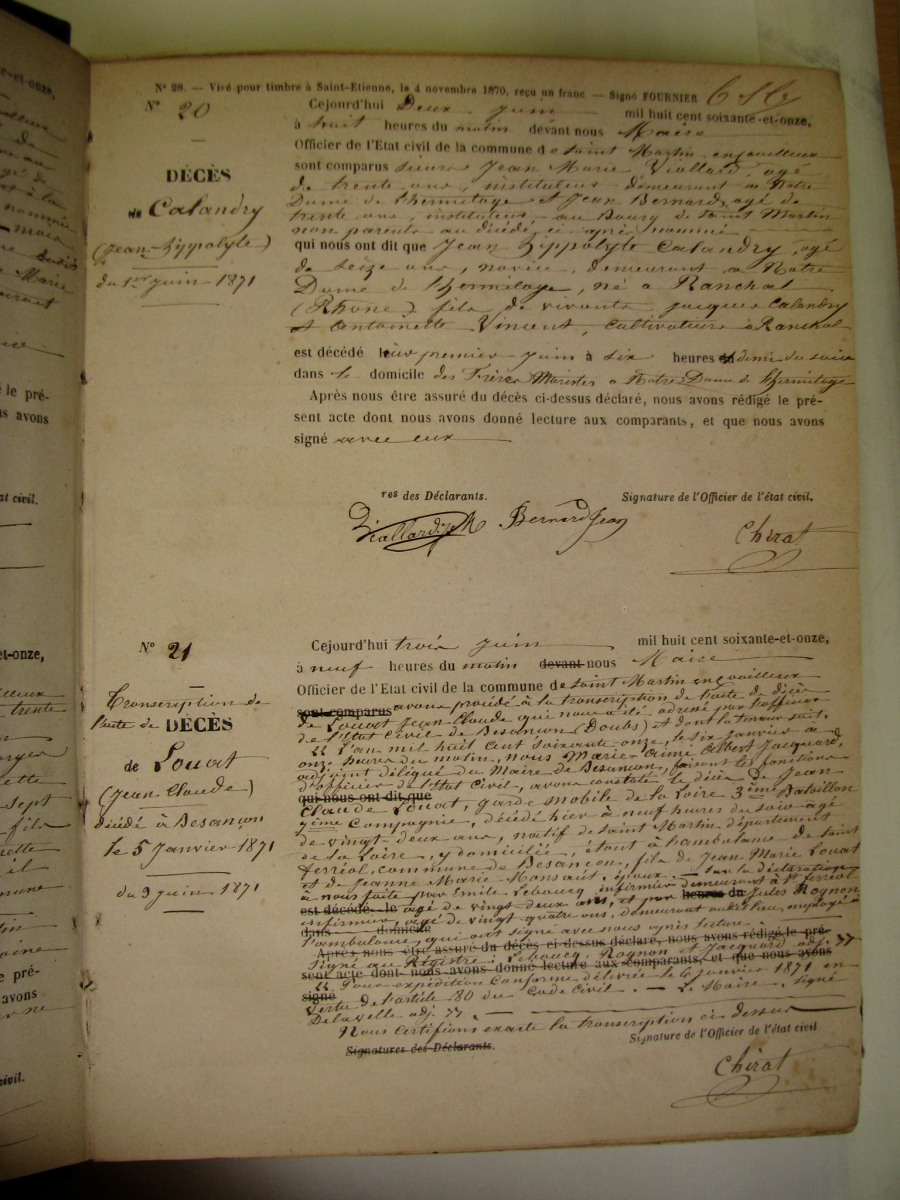 N° 28. — Visé pour timbre à Saint-Etienne, le 4 novembre 1870, reçu un franc — Signé FOURNIER
N° 20
DÉCÈS
du Calandry
(Jean-Hippolyte)
du 1er juin 1871
Cejourd'hui Deux Juin mil huit cent soixante-et-onze,
à huit heures du matin devant nous Maire
Officier de l'Etat civil de la commune de Saint Martin en Coailleux
sont comparus sieurs Jean Marie Viallard, agé
de trente ans, instituteur demeurant a Notre
Dame de l'hermitage et Jean Bernard, agé de
trente ans, instituteur au Bourg de Saint Martin
non parents au décédé ci après nommé
qui nous ont dit que Jean Hippolyte Calandry, agé
de seize ans, novice, demeurant a Notre
Dame de l'hermitage, né a Ranchal
(Rhône) fils de vivants Jacques Calandry
et Antoinette Vincent, cultivateurs à Ranchal
est décédé hier premier Juin à six heures et demie du soir
dans le domicile des Frères Maristes a Notre Dame de l'hermitage
Après nous être assuré du décès ci-dessus déclaré, nous avons rédigé le pré-
sent acte dont nous avons donné lecture aux comparants, et que nous avons
signé avec eux
res des Déclarants. Signature de l'Officier de l'état civil.
Viallard J M Bernard Jean
Chirat
N° 21
Transcription de
l'acte de DÉCÈS
de Louat
(Jean Claude)
décédé à Besançon
le 5 Janvier 1871
du 3 juin 1871
Cejourd'hui trois Juin mil huit cent soixante-et-onze,
à neuf heures du matin devant nous Maire
Officier de l'Etat civil de la commune de Saint Martin en Coailleux
sont comparus avons procédé à la transcription de l'acte de décès
de Louat Jean Claude qui nous a été adressé par l'officier
de l'état Civil de Besançon (Doubs) et dont la teneur suit.
"L'an mil huit cent soixante onze, le six janvier a
onze heures du matin, nous Marie Aimé Albert Jacquard,
adjoint délégué du Maire de Besançon, faisant les fonctions
d'officier de l'état Civil, avons constaté le décès de Jean
qui nous ont dit que
Claude Louat garde mobile de la Loire 3ème Bataillon
7ème Compagnie, décédé hier à neuf heures du soir agé
de vingt-deux ans, natif de Saint Martin département
de la Loire, y domicilié, étant à l'ambulance de Saint
Ferréol, commune de Besançon, fils de Jean Marie Louat
et de Jeanne Marie Monsaut, époux. — Sur la déclaration
à nous faite par Emile Leboucq infirmier demeurant à St Ferréol
est décédé le agé de vingt deux ans, et par heures du Jules Rognon
infirmier, agé de vingt quatre ans, demeurant audit lieu, employé à
dans domicile
l'ambulance, qui ont signé avec nous après lecture.
Après nous être assuré du décès ci-dessus déclaré, nous avons rédigé le pré-
Signé au Registre: Leboucq, Rognon et Jacquard adj. "
sent acte dont nous avons donné lecture aux comparants, et que nous avons
"Pour expédition conforme délivrée le 6 janvier 1871 en
signé
vertu de l'article 80 du Code Civil. — Le Maire, signé
Delavelle adj. "
Nous Certifions exacte la transcription ci dessus
Signatures des Déclarants. Signature de l'Officier de l'état civil
Chirat